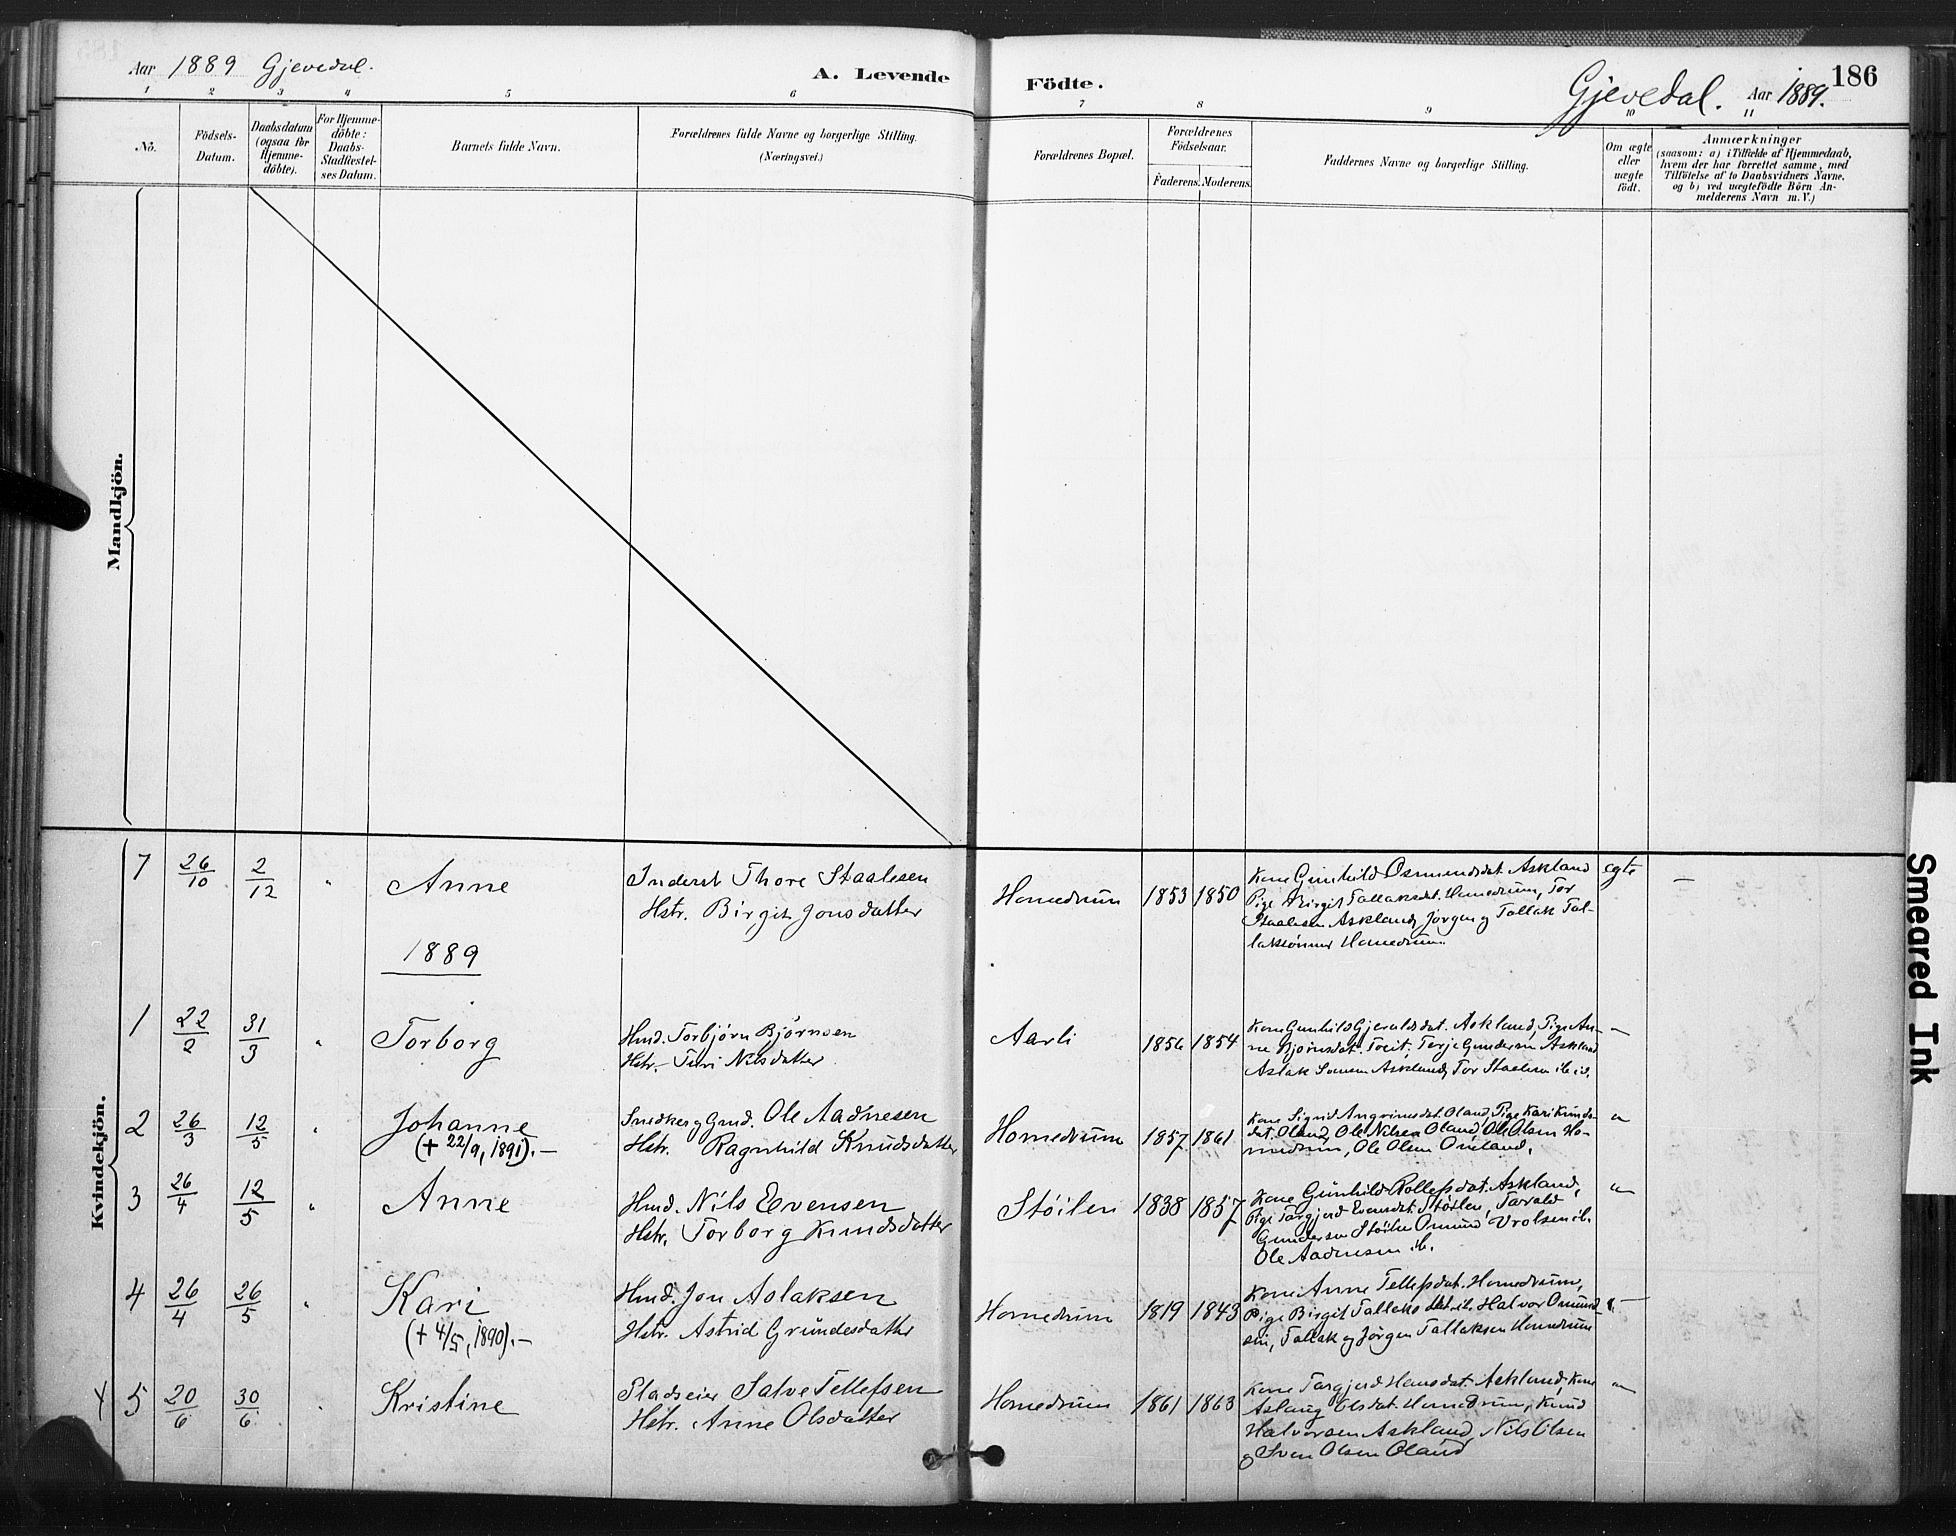 Aar 1889 Gjevedal.
A. Levende
Födte.
Gjevedal. Aar 1889.
186
1 2 3 4 5 6 7 8 9 10 11
No.
Födsels-
Datum.
Daabsdatum
(ogsaa for
Hjemme-
döbte).
For Hjemme-
döbte:
Daabs-
Stadfæstel-
ses Datum.
Barnets fulde Navn.
Forældrenes fulde Navne og borgerlige Stilling.
(Næringsvei.)
Forældrenes Bopæl.
Forældrenes
Födselsaar.
Faderens. Moderens.
Faddernes Navne og borgerlige Stilling.
Om ægte
eller
uægte
födt.
Anmærkninger
(saasom: a) i Tilfælde af Hjemmedaab,
hvem der har forrettet samme, med
Tilföielse af to Daabsvidners Navne,
og b) ved uægtefödte Börn An-
melderens Navn m. V.)
Mandkjön.
Kvindekjön.
7 26/10 2/12 " Anne
Inderst Thore Staalesen
Hstr. Birgit Jonsdatter
Homedrum 1853 1850
Kone Gunhild Osmundsdat. Askland
Pige Birgit Tallaksdat. Homedrum, Tor
Staalesen Askland, Jørgen og Tallak Tal-
laksönner Homedrum.
egte —
1889
1 22/2 31/3 " Torborg
Hmd. Torbjørn Björnsen
Hstr. Turi Nilsdatter
Aarli 1856 1854
Kone Gunhild Gjeruldsdat. Askland, Pige An-
ne Bjørnsdat. Tveit, Terje Gundersen Askland
Aslak Askland, Tor Staalesen ib. id.
"
2 26/3 12/5 " Johanne
(+ 22/9, 1891).—
Snedker og Gmd. Ole Aadnesen
Hstr. Ragnhild Knudsdatter
Homedrum 1857 1861
Kone Sigrid Oland, Pige Kari Knuds-
dat. Oland, Ole Nilsen Oland, Ole Olsen Ho-
medrum, Ole Olsen
"
3 26/4 12/5 " Anne
Hmd. Nils Evensen
Hstr. Torborg Knudsdatter
Stöilen 1838 1857
Kone Gunhild Rollefsdat. Askland,
Pige Targjerd Evensdat. Stöilen, Tarald
Gundersen Stöilen Omund ib.
Ole Aadnesen ib.
"
4 26/4 26/5 " Kari
(+ 4/5, 1890).—
Hmd. Jon Aslaksen
Hstr. Astrid Grundesdatter
Homedrum 1819 1843
Kone Anne Tellefsdat. Homedrum,
Pige Birgit Tallaks dat. ib. Halvor Omund
sen, Tallak og Jörgen Tallaksen Homedrum
" —
x 5 20/6 30/6 " Kristine
Pladseier Salve Tellefsen
Hstr. Anne Olsdatter
Homedrum 1861 1863
Kone Targjerd Hansdat. Askland, Kone
Aslaug Olsdat. Homedrum, Knud
Halvorsen Askland, Nils Olsen
og Sven Olsen Oland
"
Smeared Ink